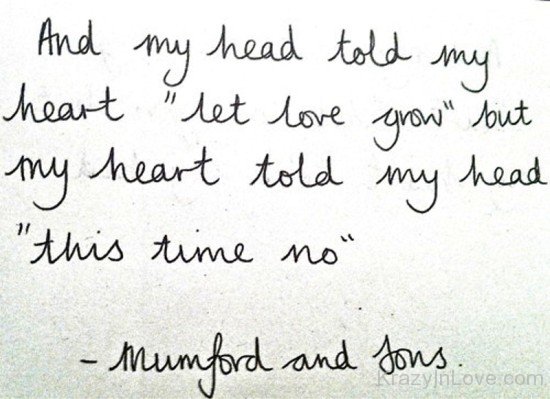 And my head told my
heart "let love grow" but
my heart told my head
"this time no"
- Mumford and Sons.
KrazyInLove.com